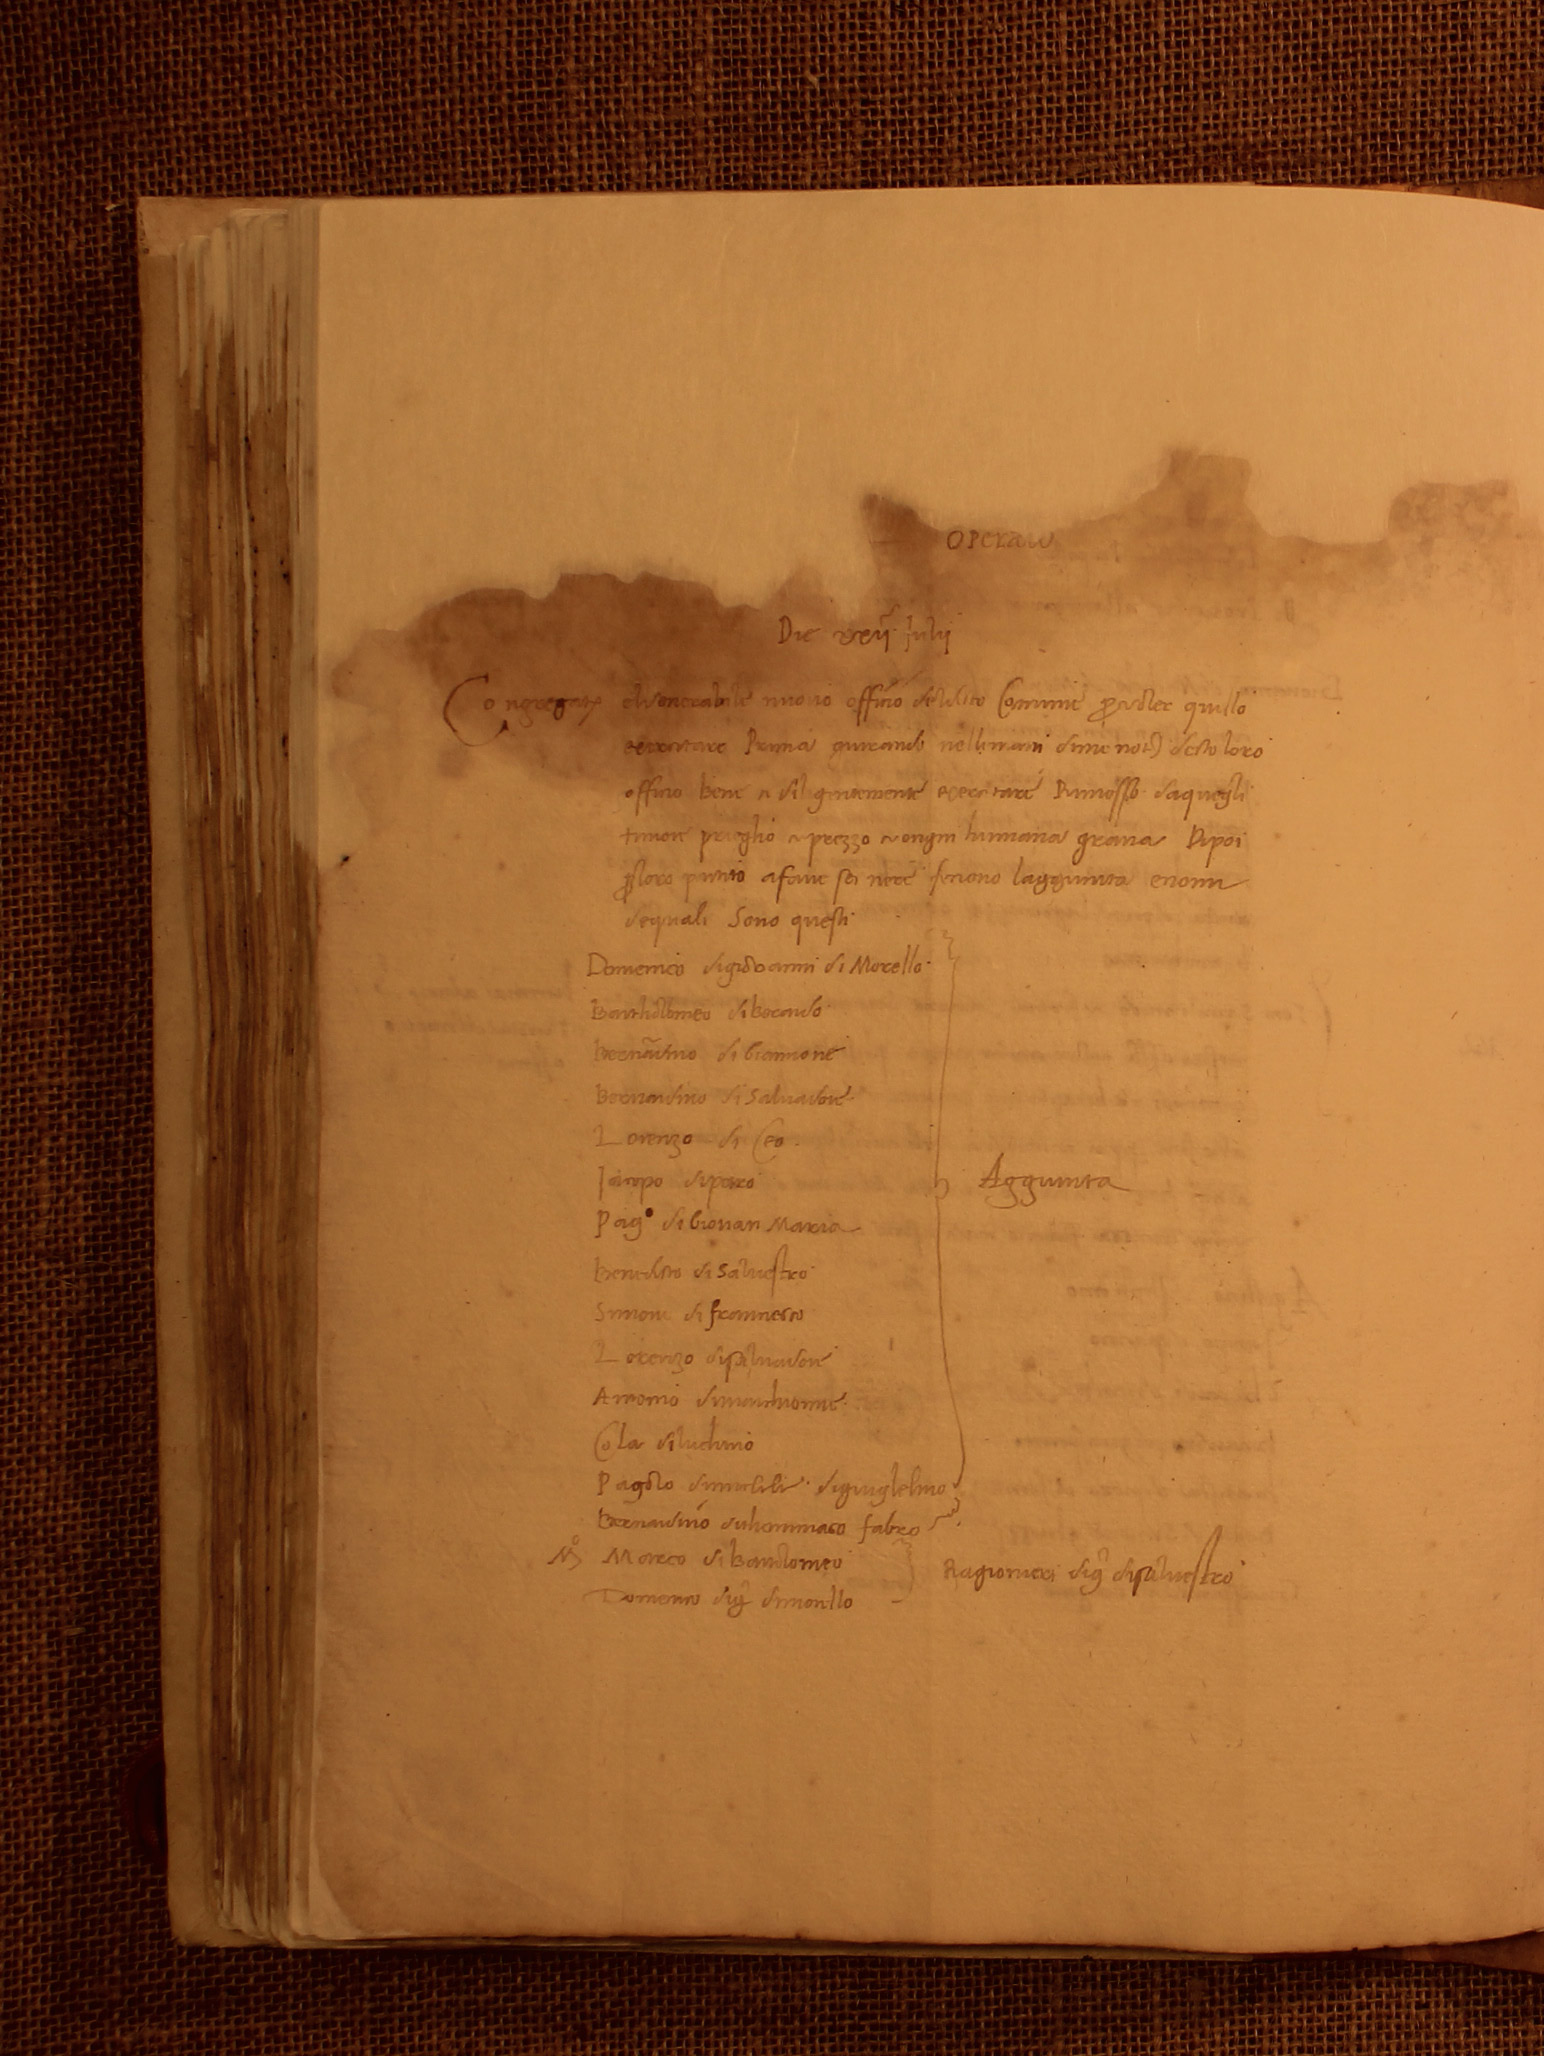 operaio
Die xxij Julij
Congregato elvenerabile nuovo offitio deldicto Comune p voler quello
exercitare Prima giurando nellemani dime not decto loro
offitio bene e diligentemente exercitare Rimosso daquegli
timore prieghio e prezzo e ongni humana gratia Dipoi
p loro partito afave sei nere feciono laggiunta enomi
dequali Sono questi
Domenico digiovanni di Morello
Bartholomeo diberardo
Bernardino di Giannone
Bernardino di Salvadore
Lorenzo di Ceo
Jacopo dipiero
Pag.º di Giovan Maria
Benedicto di Salvestro
Simone di francesco
Lorenzo disalvadore
Antonio dimarchionne
Cola diluchino
Pagolo diguiglelmo
Bernardino dithommaso fabro
Aggiunta
Mº Marco di Bartolomeo
Domenico digº dimorello
Ragionieri digº disalvestro